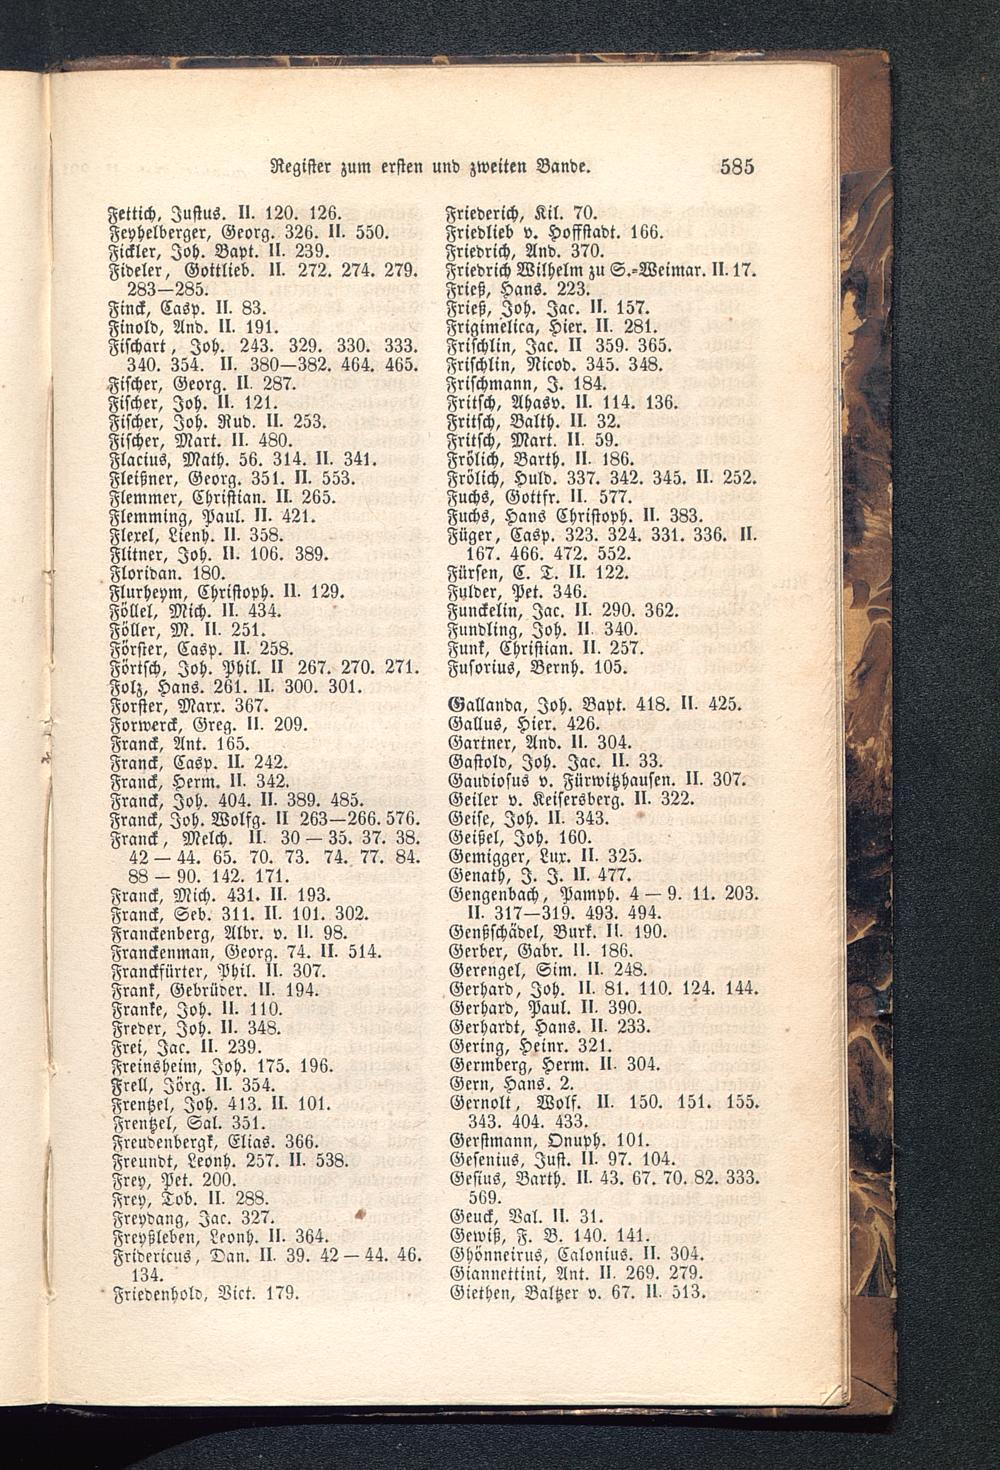 Register zum ersten und zweiten Bande. 585
Fettich, Justus. II. 120. 126.
Feyhelberger, Georg. 326. II. 550.
Fickler, Joh. Bapt. II. 239.
Fideler, Gottlieb. II. 272. 274. 279.
283—285.
Finck, Casp. II. 83.
Finold, And. II. 191.
Fischart, Joh. 243. 329. 330. 333.
340. 354. II. 380—382. 464. 465.
Fischer, Georg. II. 287.
Fischer, Joh. II. 121.
Fischer, Joh. Rud. II. 253.
Fischer, Mart. II. 480.
Flacius, Math. 56. 314. II. 341.
Fleißner, Georg. 351. II. 553.
Flemmer, Christian. II. 265.
Flemming, Paul. II. 421.
Flexel, Lienh. II. 358.
Flitner, Joh. II. 106. 389.
Floridan. 180.
Flurheym, Christoph. II. 129.
Föllel, Mich. II. 434.
Föller, M. II. 251.
Förster, Casp. II. 258.
Förtsch, Joh. Phil. II 267. 270. 271.
Folz, Hans. 261. II. 300. 301.
Forster, Marx. 367.
Forwerck, Greg. II. 209.
Franck, Ant. 165.
Franck, Casp. II. 242.
Franck, Herm. II. 342.
Franck, Joh. 404. II. 389. 485.
Franck, Joh. Wolfg. II 263—266. 576.
Franck, Melch. II. 30 — 35. 37. 38.
42 — 44. 65. 70. 73. 74. 77. 84.
88 — 90. 142. 171.
Franck, Mich. 431. II. 193.
Franck, Seb. 311. II. 101. 302.
Franckenberg, Albr. v. II. 98.
Franckenman, Georg. 74. II. 514.
Franckfürter, Phil. II. 307.
Frank, Gebrüder. II. 194.
Franke, Joh. II. 110.
Freder, Joh. II. 348.
Frei, Jac. II. 239.
Freinsheim, Joh. 175. 196.
Frell, Jörg. II. 354.
Frentzel, Joh. 413. II. 101.
Frentzel, Sal. 351.
Freudenbergk, Elias. 366.
Freundt, Leonh. 257. II. 538.
Frey, Pet. 200.
Frey, Tob. II. 288.
Freydang, Jac. 327.
Freyßleben, Leonh. II. 364.
Fridericus, Dan. II. 39. 42 — 44. 46.
134.
Friedenhold, Vict. 179.
Friederich, Kil. 70.
Friedlieb v. Hoffstadt. 166.
Friedrich, And. 370.
Friedrich Wilhelm zu S.-Weimar. II. 17.
Frieß, Hans. 223.
Frieß, Joh. Jac. II. 157.
Frigimelica, Hier. II. 281.
Frischlin, Jac. II 359. 365.
Frischlin, Nicod. 345. 348.
Frischmann, J. 184.
Fritsch, Ahasv. II. 114. 136.
Fritsch, Balth. II. 32.
Fritsch, Mart. II. 59.
Frölich, Barth. II. 186.
Frölich, Huld. 337. 342. 345. II. 252.
Fuchs, Gottfr. II. 577.
Fuchs, Hans Christoph. II. 383.
Füger, Casp. 323. 324. 331. 336. II.
167. 466. 472. 552.
Fürsen, C. T. II. 122.
Fulder, Pet. 346.
Funckelin, Jac. II. 290. 362.
Fundling, Joh. II. 340.
Funk, Christian. II. 257.
Fusorius, Bernh. 105.
Gallanda, Joh. Bapt. 418. II. 425.
Gallus, Hier. 426.
Gartner, And. II. 304.
Gastold, Joh. Jac. II. 33.
Gaudiosus v. Fürwitzhausen. II. 307.
Geiler v. Keisersberg. II. 322.
Geise, Joh. II. 343.
Geißel, Joh. 160.
Gemigger, Lux. II. 325.
Genath, J. J. II. 477.
Gengenbach, Pamph. 4 — 9. 11. 203.
II. 317—319. 493. 494.
Genßschädel, Burk. II. 190.
Gerber, Gabr. II. 186.
Gerengel, Sim. II. 248.
Gerhard, Joh. II. 81. 110. 124. 144.
Gerhard, Paul. II. 390.
Gerhardt, Hans. II. 233.
Gering, Heinr. 321.
Germberg, Herm. II. 304.
Gern, Hans. 2.
Gernolt, Wolf. II. 150. 151. 155.
343. 404. 433.
Gerstmann, Onuph. 101.
Gesenius, Just. II. 97. 104.
Gesius, Barth. II. 43. 67. 70. 82. 333.
569.
Geuck, Val. II. 31.
Gewiß, F. B. 140. 141.
Ghönneirus, Calonius. II. 304.
Giannettini, Ant. II. 269. 279.
Giethen, Baltzer v. 67. II. 513.